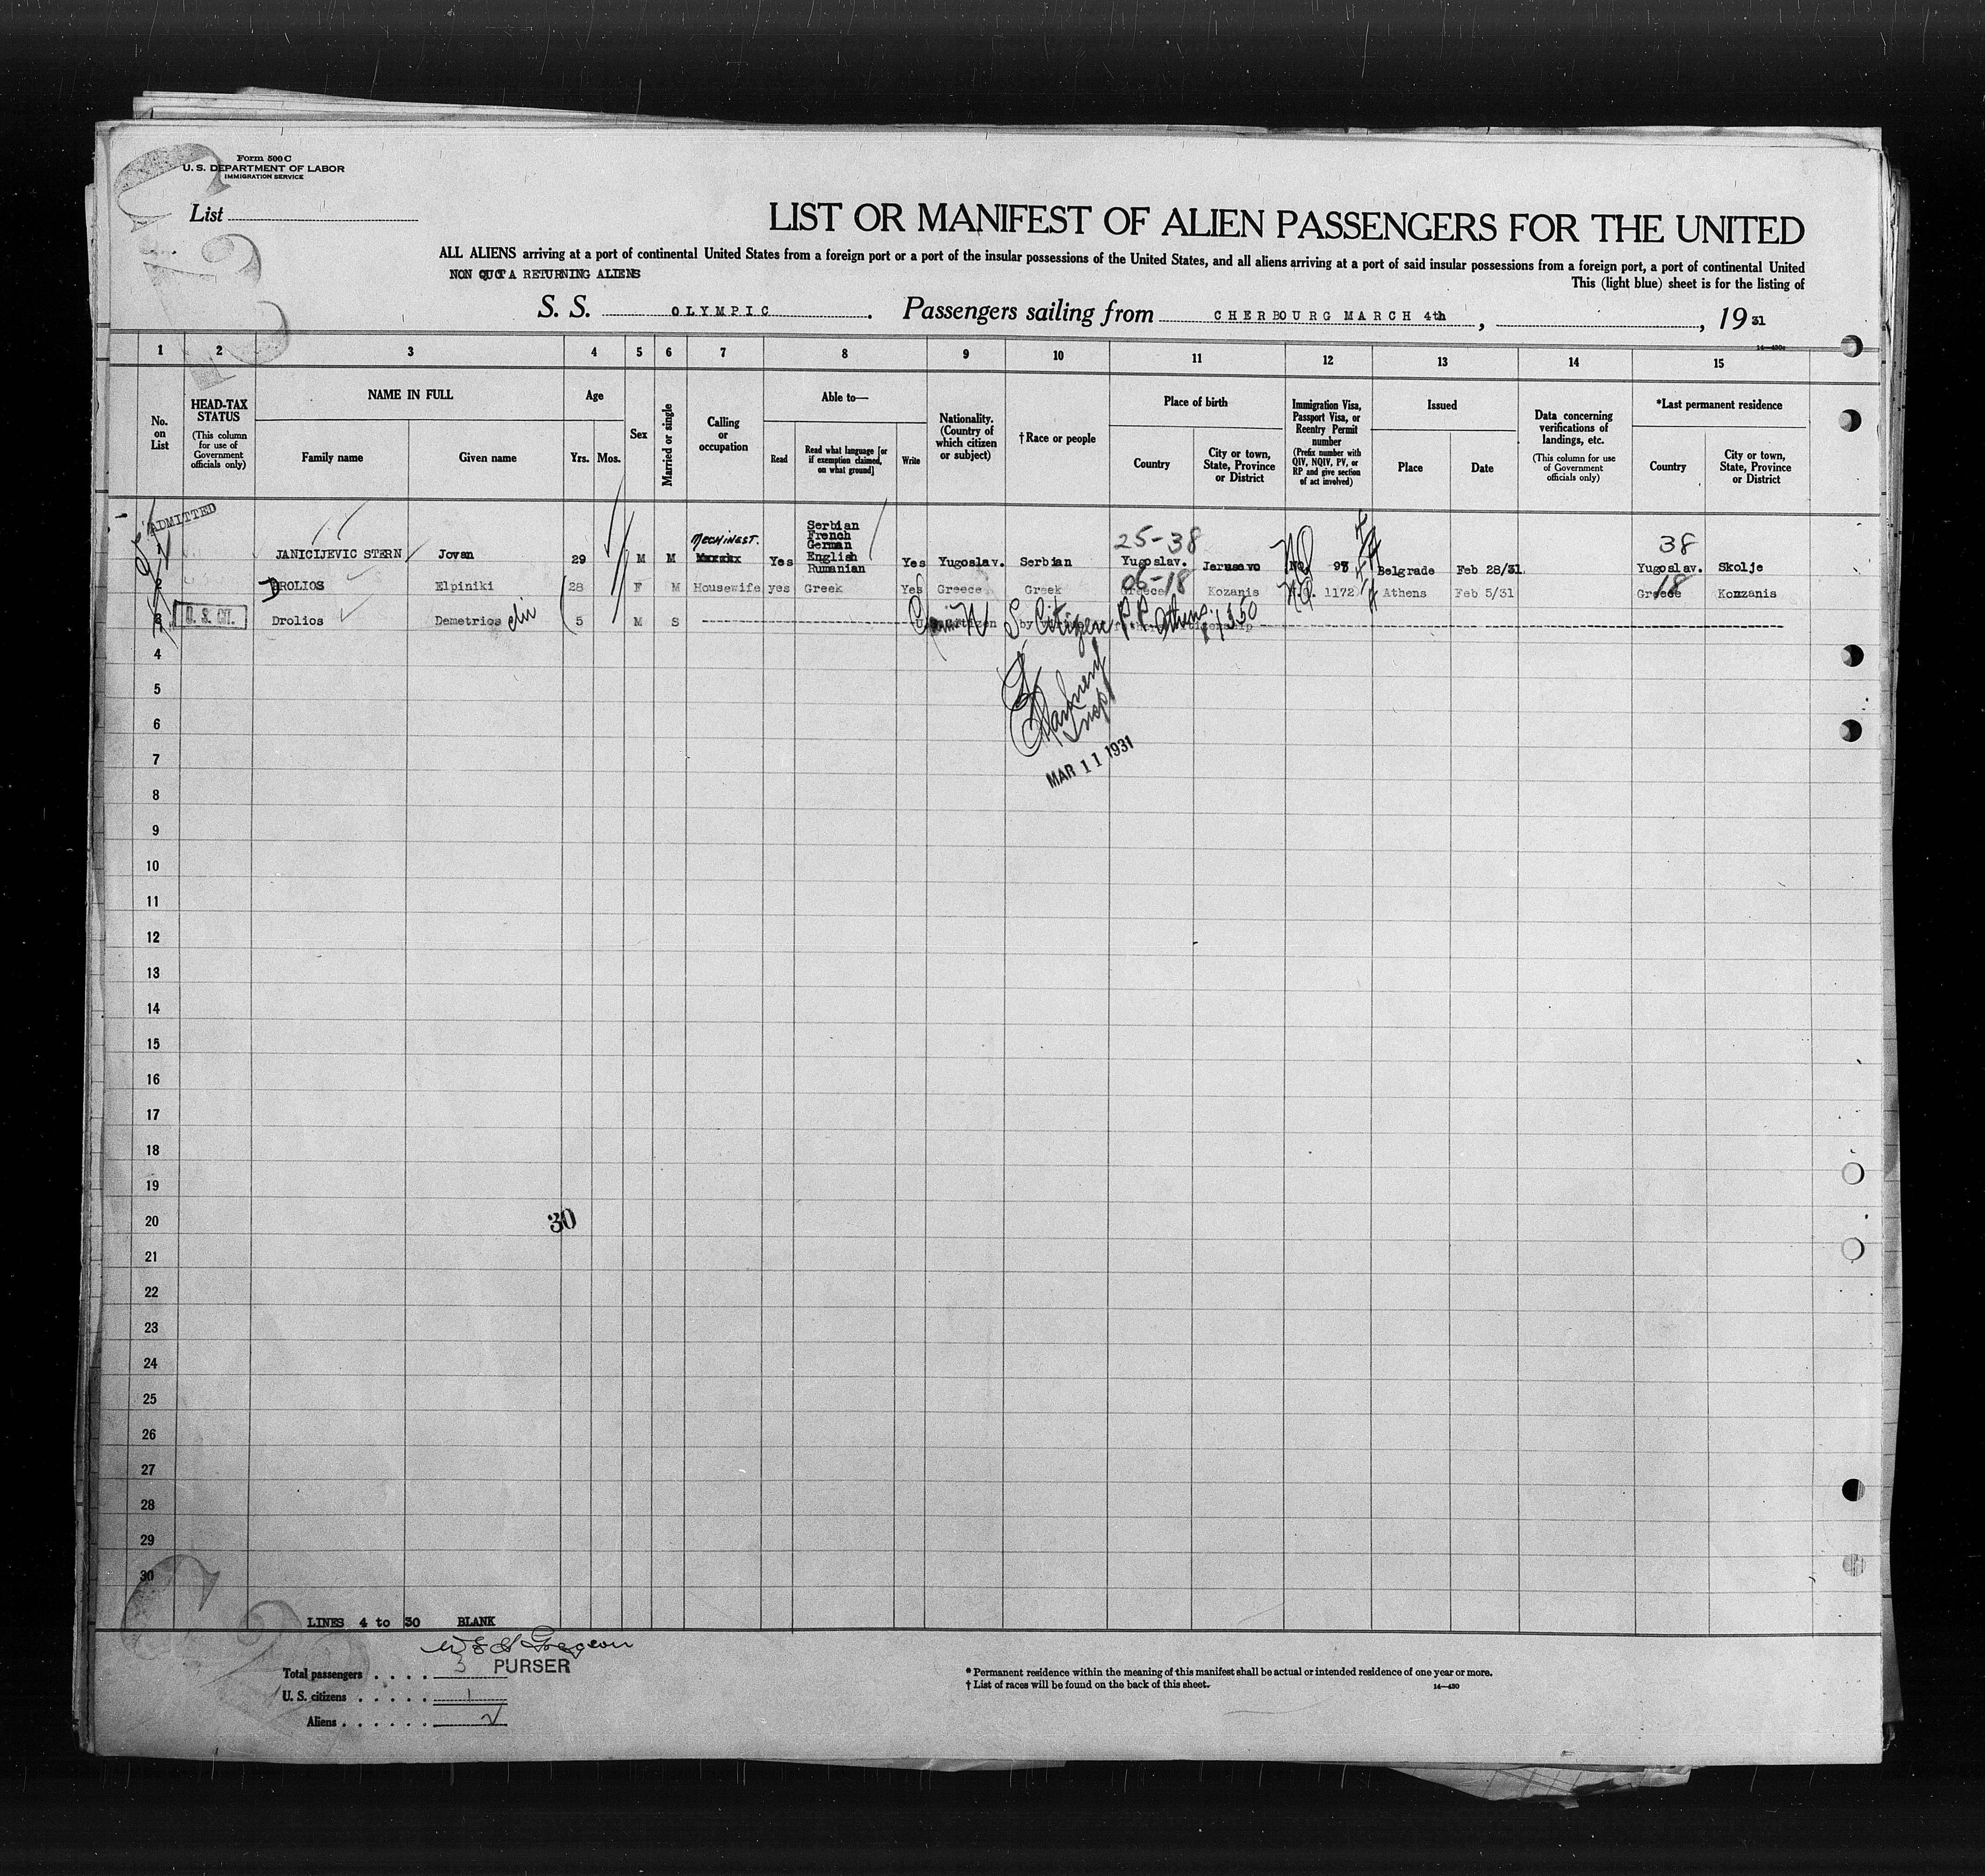 Form 500 C
U. S. DEPARTMENT OF LABOR
IMMIGRATION SERVICE
List
LIST OR MANIFEST OF ALIEN PASSENGERS FOR THE UNITED
ALL ALIENS arriving at a port of continental United States from a foreign port or a port of the insular possessions of the United States, and all aliens arriving at a port of said insular possessions from a foreign port, a port of continental United
NON QUOTA RETURNING ALIENS
This (light blue) sheet is for the listing of
S. S. OLYMPIC. Passengers sailing from CHERBOURG MARCH 4th, , 19 31
14—430c
1 2 3 4 5 6 7 8 9 10 11 12 13 14 15
No. on List
HEAD-TAX STATUS (This column for use of Government officials only)
NAME IN FULL
Family name
Given name
Age
Yrs. Mos.
Sex
Married or single
Calling or occupation
Able to—
Read
Read what language [or if exemption claimed, on what ground]
Write
Nationality. (Country of which citizen or subject)
†Race or people
Place of birth
Country
City or town, State, Province or District
Immigration Visa, Passport Visa, or Reentry Permit number (Prefix number with QIV, NQIV, PV, or RP and give section of act involved)
Issued
Place
Date
Data concerning verifications of landings, etc. (This column for use of Government officials only)
*Last permanent residence
Country
City or town, State, Province or District
ADMITTED
JANICIJEVIC STERN Jovan 29 M M MECHINEST. Yes Serbian French German English Rumanian Yes Yugoslav. Serbian 25-38 Yugoslav. NQ No. Belgrade Feb 28/31 38 Yugoslav. Skolje
2 DROLIOS Elpiniki 28 F M Housewife yes Greek Yes Greece Greek 06-18 Greece Kozanis N.Q. 1172 Athens Feb 5/31 18 Greece Konzanis
3 U. S. CIT. Drolios Demetrios 5 M S U S Citizen P.P. Athens
4
5
6
Insp
7
MAR 11 1931
8
9
10
11
12
13
14
15
16
17
18
19
20
30
21
22
23
24
25
26
27
28
29
30
LINES 4 to 30 BLANK
PURSER
Total passengers . . . . 3
U. S. citizens . . . . . 1
Aliens . . . . . . 2
* Permanent residence within the meaning of this manifest shall be actual or intended residence of one year or more.
† List of races will be found on the back of this sheet.
14—430